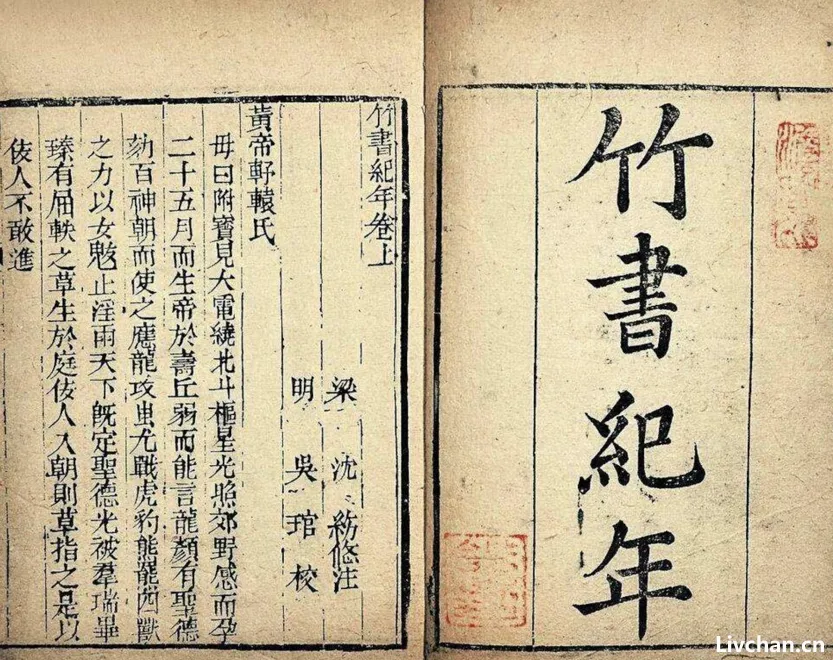 竹書紀年
竹書紀年卷上
梁 沈 約附注
明 吳 琯 校
黃帝軒轅氏
母曰附寶見大電繞北斗樞星光照郊野感而孕
二十五月而生帝於壽丘弱而能言龍顏有聖德
劾百神朝而使之應龍攻蚩尤戰虎豹熊羆四獸
之力以女魃止淫雨天下既定聖德光被羣瑞畢
臻有屈軼之草生於庭佞人入朝則草指之是以
佞人不敢進
Livchan.cn